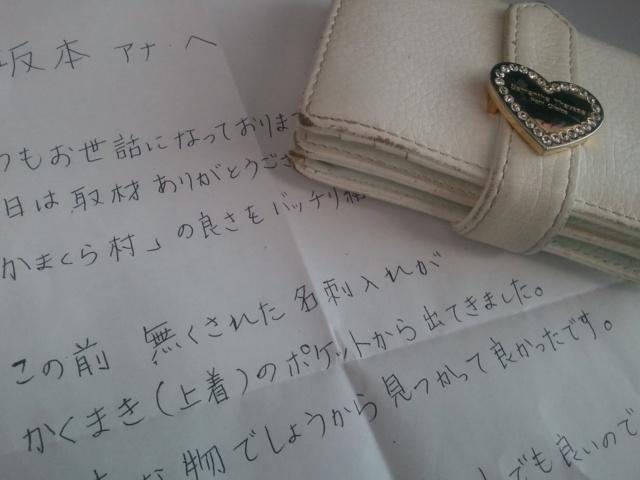 坂本 アナ へ
つもお世話になっておりま
日は取材ありがとうござ
かまくら村」の良さをバッチリ
この前 無くされた名刺入れが
かくまき(上着)のポケットから出てきました。
な物でしょうから見つかって良かったです。
でも良いので